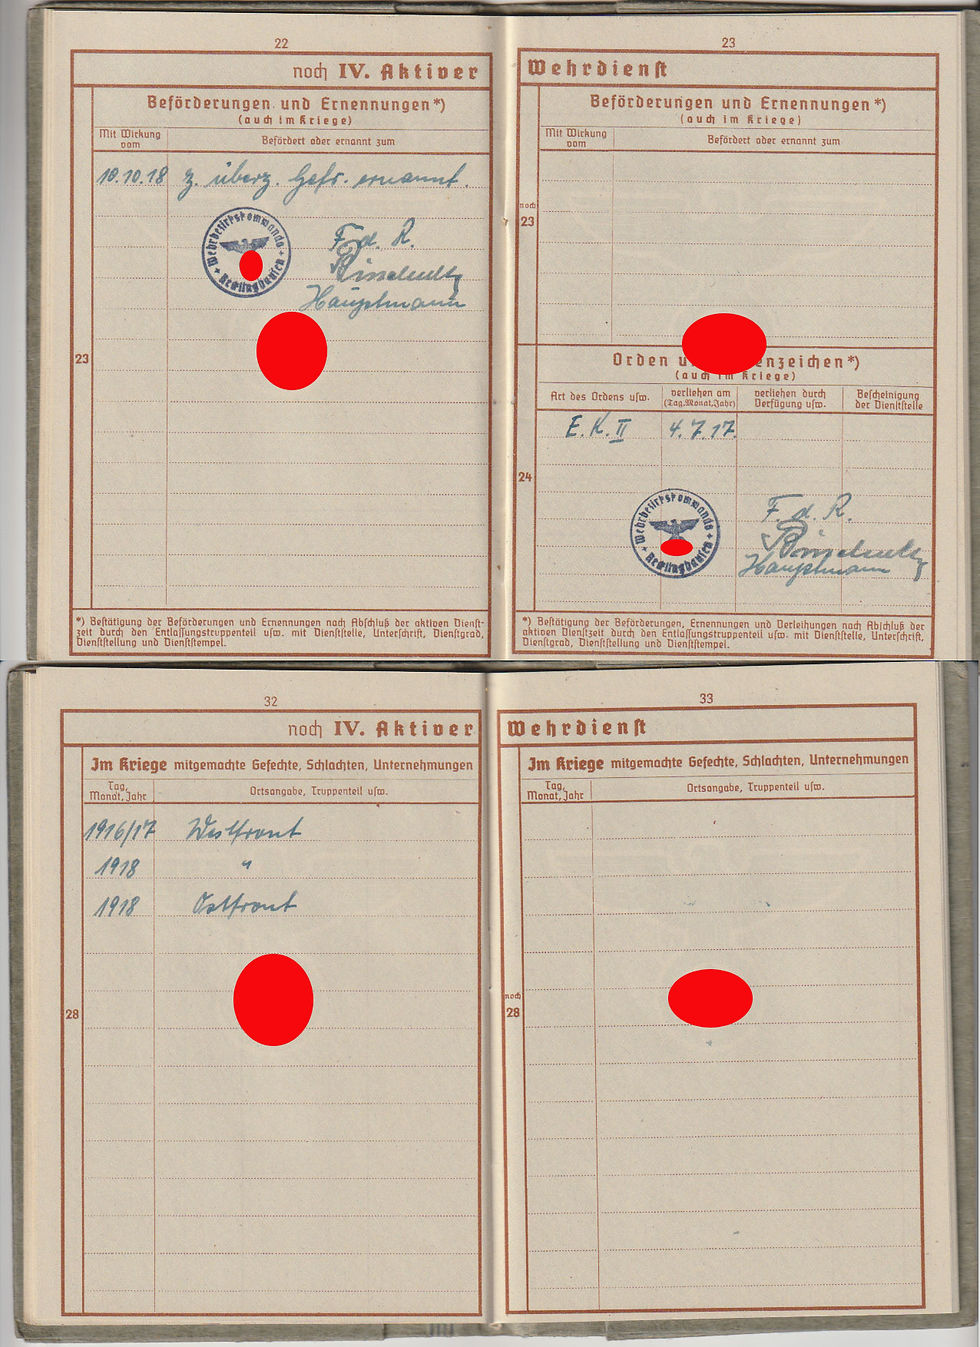 22
noch IV. Aktiver
Beförderungen und Ernennungen*)
(auch im Kriege)
Mit Wirkung vom
Befördert oder ernannt zum
10.10.18 z. überz. Gefr. ernannt.
Wehrbezirkskommando
Recklinghausen
F. d. R.
Hauptmann
23
*) Bestätigung der Beförderungen und Ernennungen nach Abschluß der aktiven Dienst-
zeit durch den Entlassungstruppenteil usw. mit Dienststelle, Unterschrift, Dienstgrad,
Dienststellung und Dienststempel.
23
Wehrdienst
Beförderungen und Ernennungen*)
(auch im Kriege)
Mit Wirkung vom
Befördert oder ernannt zum
noch
23
Orden u enzeichen*)
(auch im Kriege)
Art des Ordens usw.
verliehen am
(Tag, Monat, Jahr)
verliehen durch
Verfügung usw.
Bescheinigung
der Dienststelle
E.K. II 4.7.17.
24
Wehrbezirkskommando
Recklinghausen
F. d. R.
Hauptmann
*) Bestätigung der Beförderungen, Ernennungen und Verleihungen nach Abschluß der
aktiven Dienstzeit durch den Entlassungstruppenteil usw. mit Dienststelle, Unterschrift,
Dienstgrad, Dienststellung und Dienststempel.
32
noch IV. Aktiver
Im Kriege mitgemachte Gefechte, Schlachten, Unternehmungen
Tag,
Monat, Jahr
Ortsangabe, Truppenteil usw.
1916/17 Westfront
1918 "
1918 Ostfront
28
33
Wehrdienst
Im Kriege mitgemachte Gefechte, Schlachten, Unternehmungen
Tag,
Monat, Jahr
Ortsangabe, Truppenteil usw.
noch
28